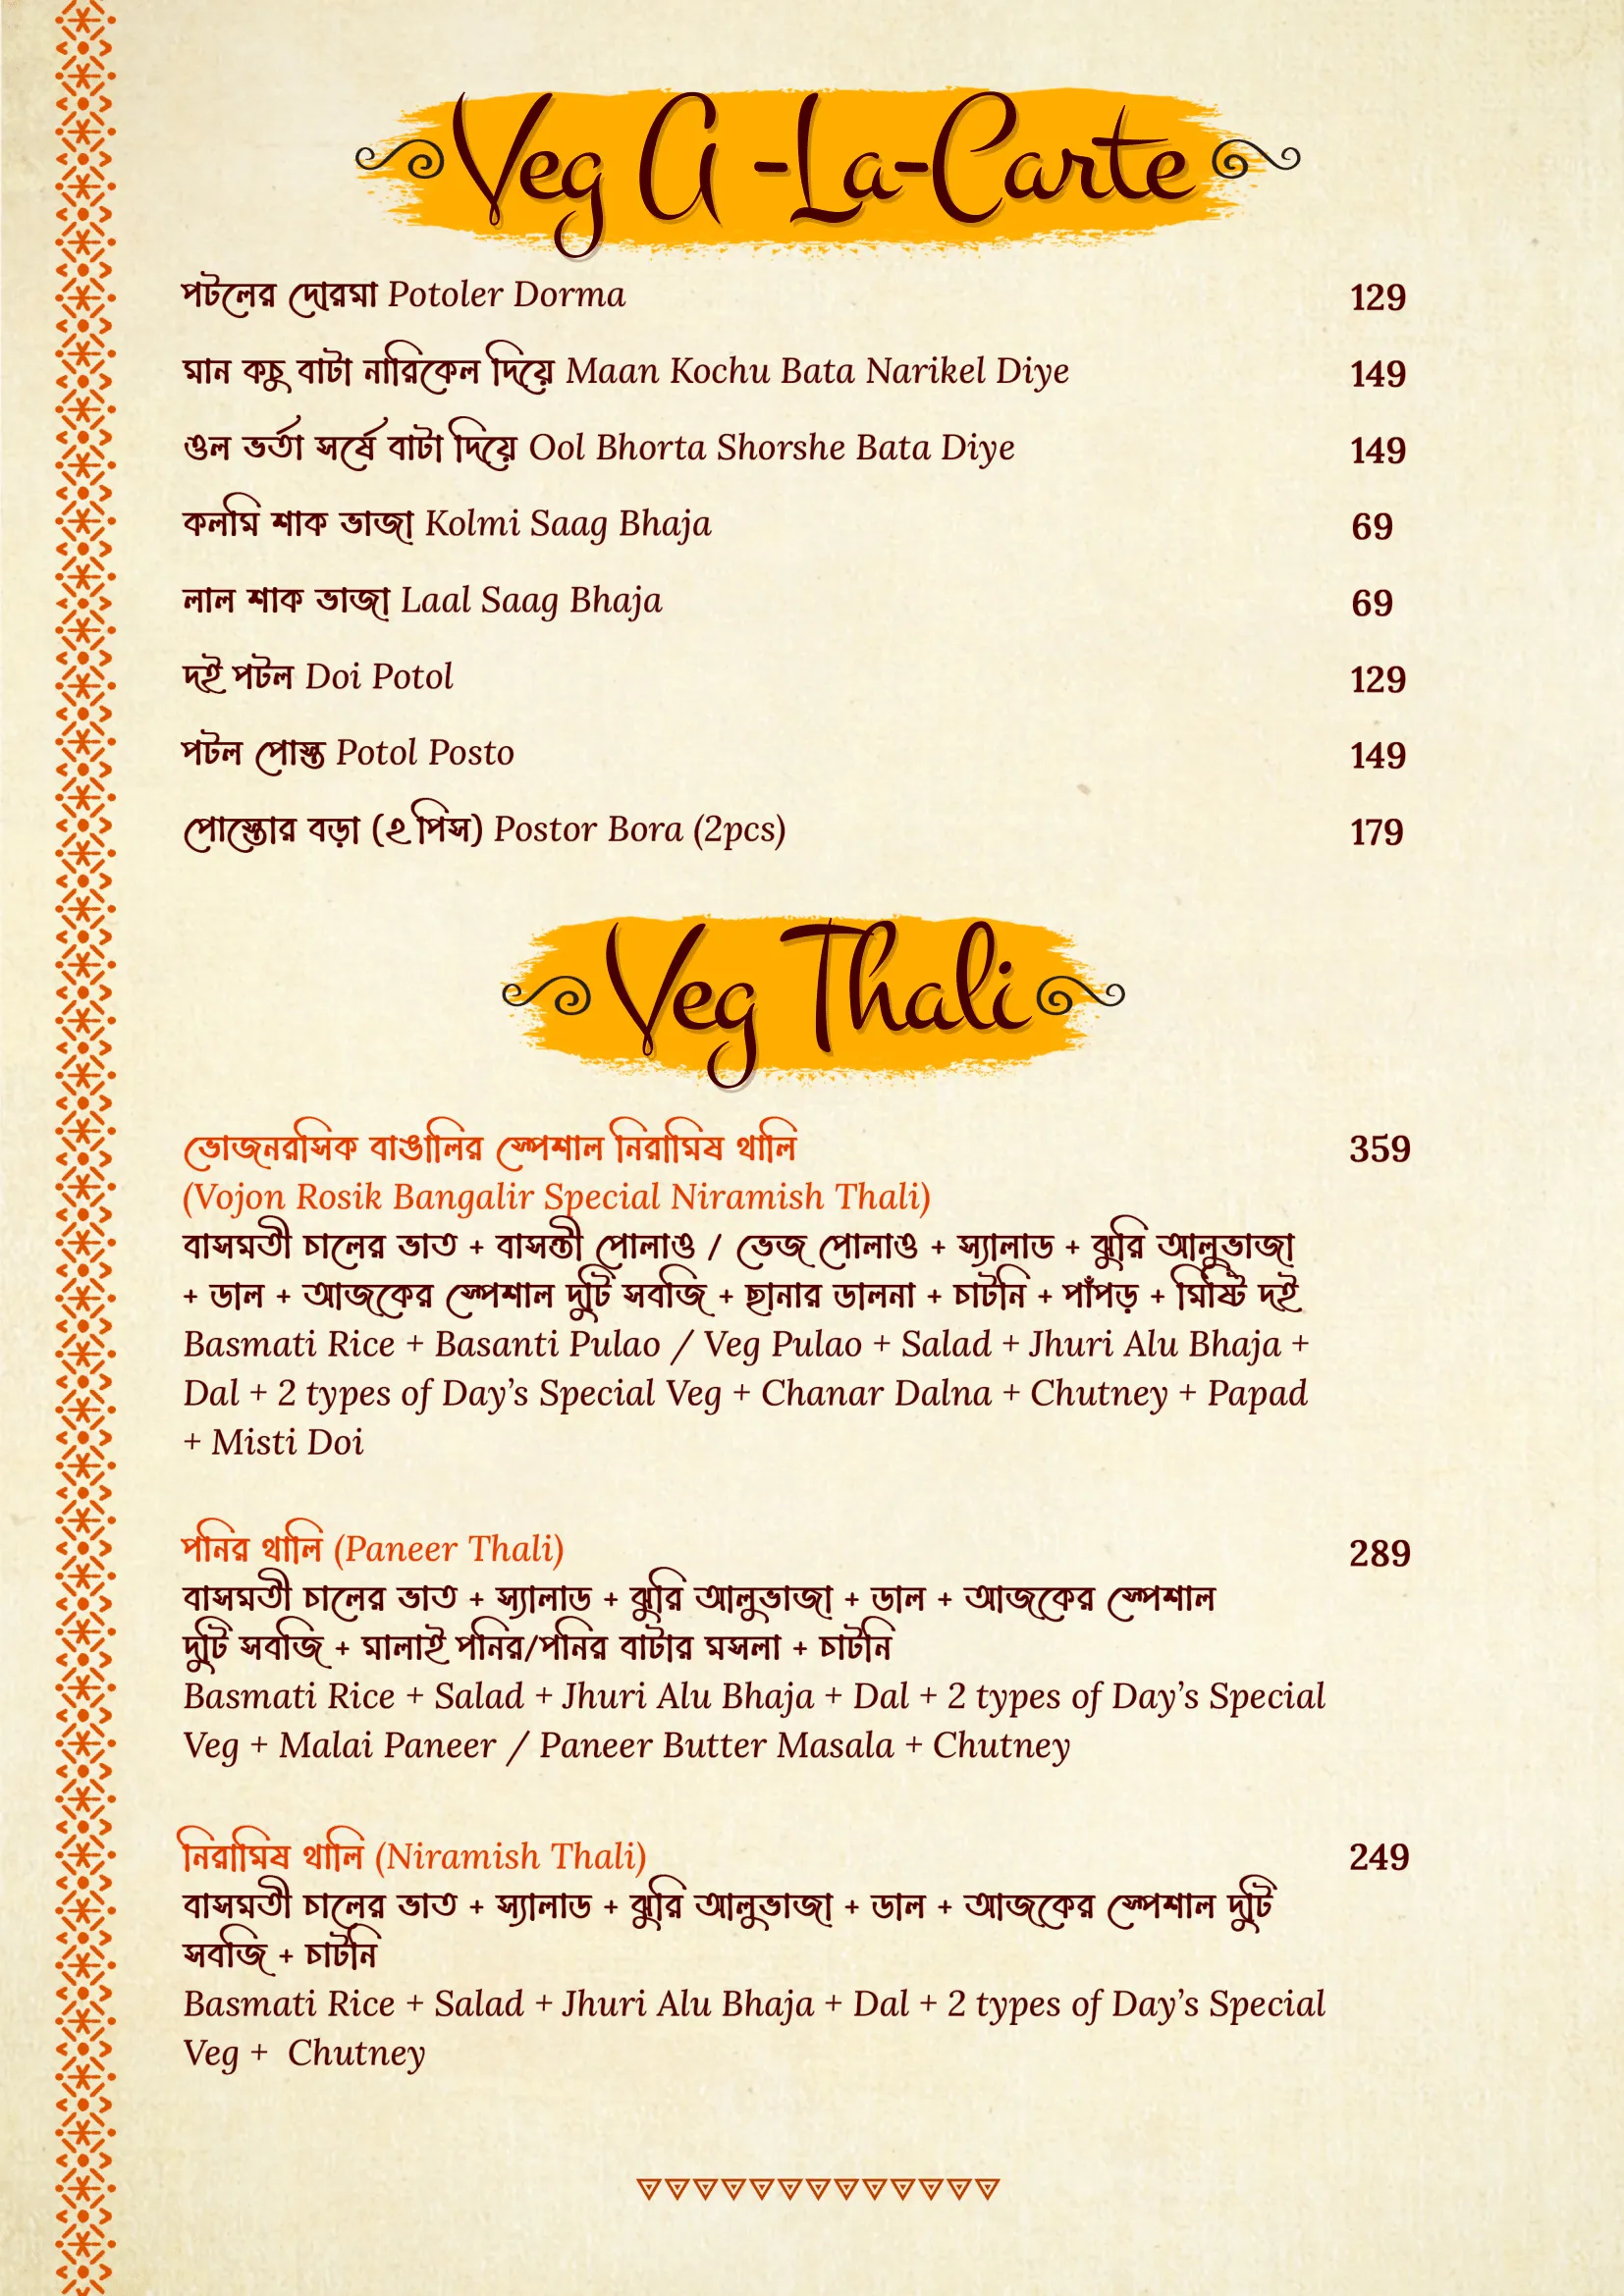 Veg A -La-Carte
পটলের দোরমা Potoler Dorma 129
মান কচু বাটা নারিকেল দিয়ে Maan Kochu Bata Narikel Diye 149
ওল ভর্তা সর্ষে বাটা দিয়ে Ool Bhorta Shorshe Bata Diye 149
কলমি শাক ভাজা Kolmi Saag Bhaja 69
লাল শাক ভাজা Laal Saag Bhaja 69
দই পটল Doi Potol 129
পটল পোস্ত Potol Posto 149
পোস্তোর বড়া (২ পিস) Postor Bora (2pcs) 179
Veg Thali
ভোজনরসিক বাঙালির স্পেশাল নিরামিষ থালি 359
(Vojon Rosik Bangalir Special Niramish Thali)
বাসমতী চালের ভাত + বাসন্তী পোলাও / ভেজ পোলাও + স্যালাড + ঝুরি আলুভাজা
+ ডাল + আজকের স্পেশাল দুটি সবজি + ছানার ডালনা + চাটনি + পাঁপড় + মিষ্টি দই
Basmati Rice + Basanti Pulao / Veg Pulao + Salad + Jhuri Alu Bhaja +
Dal + 2 types of Day’s Special Veg + Chanar Dalna + Chutney + Papad
+ Misti Doi
পনির থালি (Paneer Thali) 289
বাসমতী চালের ভাত + স্যালাড + ঝুরি আলুভাজা + ডাল + আজকের স্পেশাল
দুটি সবজি + মালাই পনির/পনির বাটার মসলা + চাটনি
Basmati Rice + Salad + Jhuri Alu Bhaja + Dal + 2 types of Day’s Special
Veg + Malai Paneer / Paneer Butter Masala + Chutney
নিরামিষ থালি (Niramish Thali) 249
বাসমতী চালের ভাত + স্যালাড + ঝুরি আলুভাজা + ডাল + আজকের স্পেশাল দুটি
সবজি + চাটনি
Basmati Rice + Salad + Jhuri Alu Bhaja + Dal + 2 types of Day’s Special
Veg + Chutney